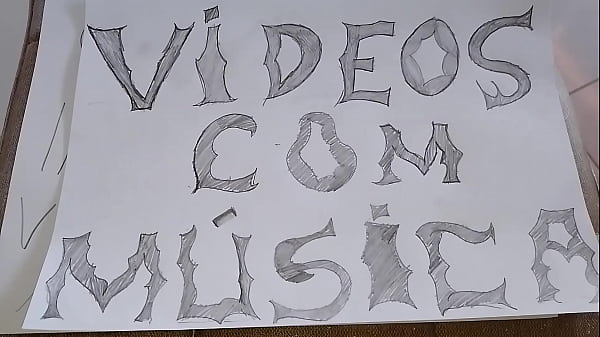 ViDEOS
COM
MÚSiCA